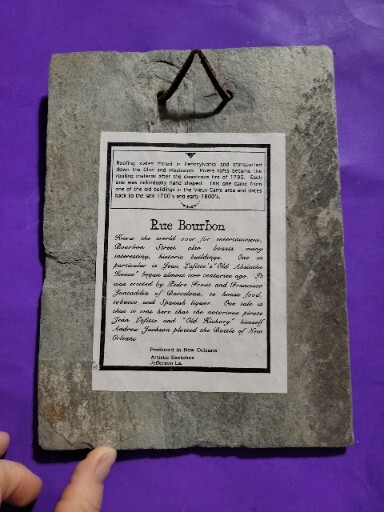 Roofing slates mined in Pennsylvania and transported
down the Ohio and Mississippi Rivers rafts became the
roofing material after the disastrous fire of 1795. Each
one was individually hand shaped. This one came from
one of the old buildings in the Vieux Carre area and dates
back to the late 1700's and early 1800's.
Rue Bourbon
Known the world over for entertainment,
Bourbon Street also boasts many
interesting, historic buildings. One in
particular is Jean Lafitte's "Old Absinthe
House" begun almost two centuries ago. It
was erected by Pedro Front and Francisco
Juncadilia of Barcelona, to house food,
tobacco and Spanish liquor. One tale is
that it was here that the notorious pirate
Jean Lafitte and "Old Hickory" himself
Andrew Jackson plotted the Battle of New
Orleans
Produced in New Orleans
Artistic Sketches
Jefferson La.